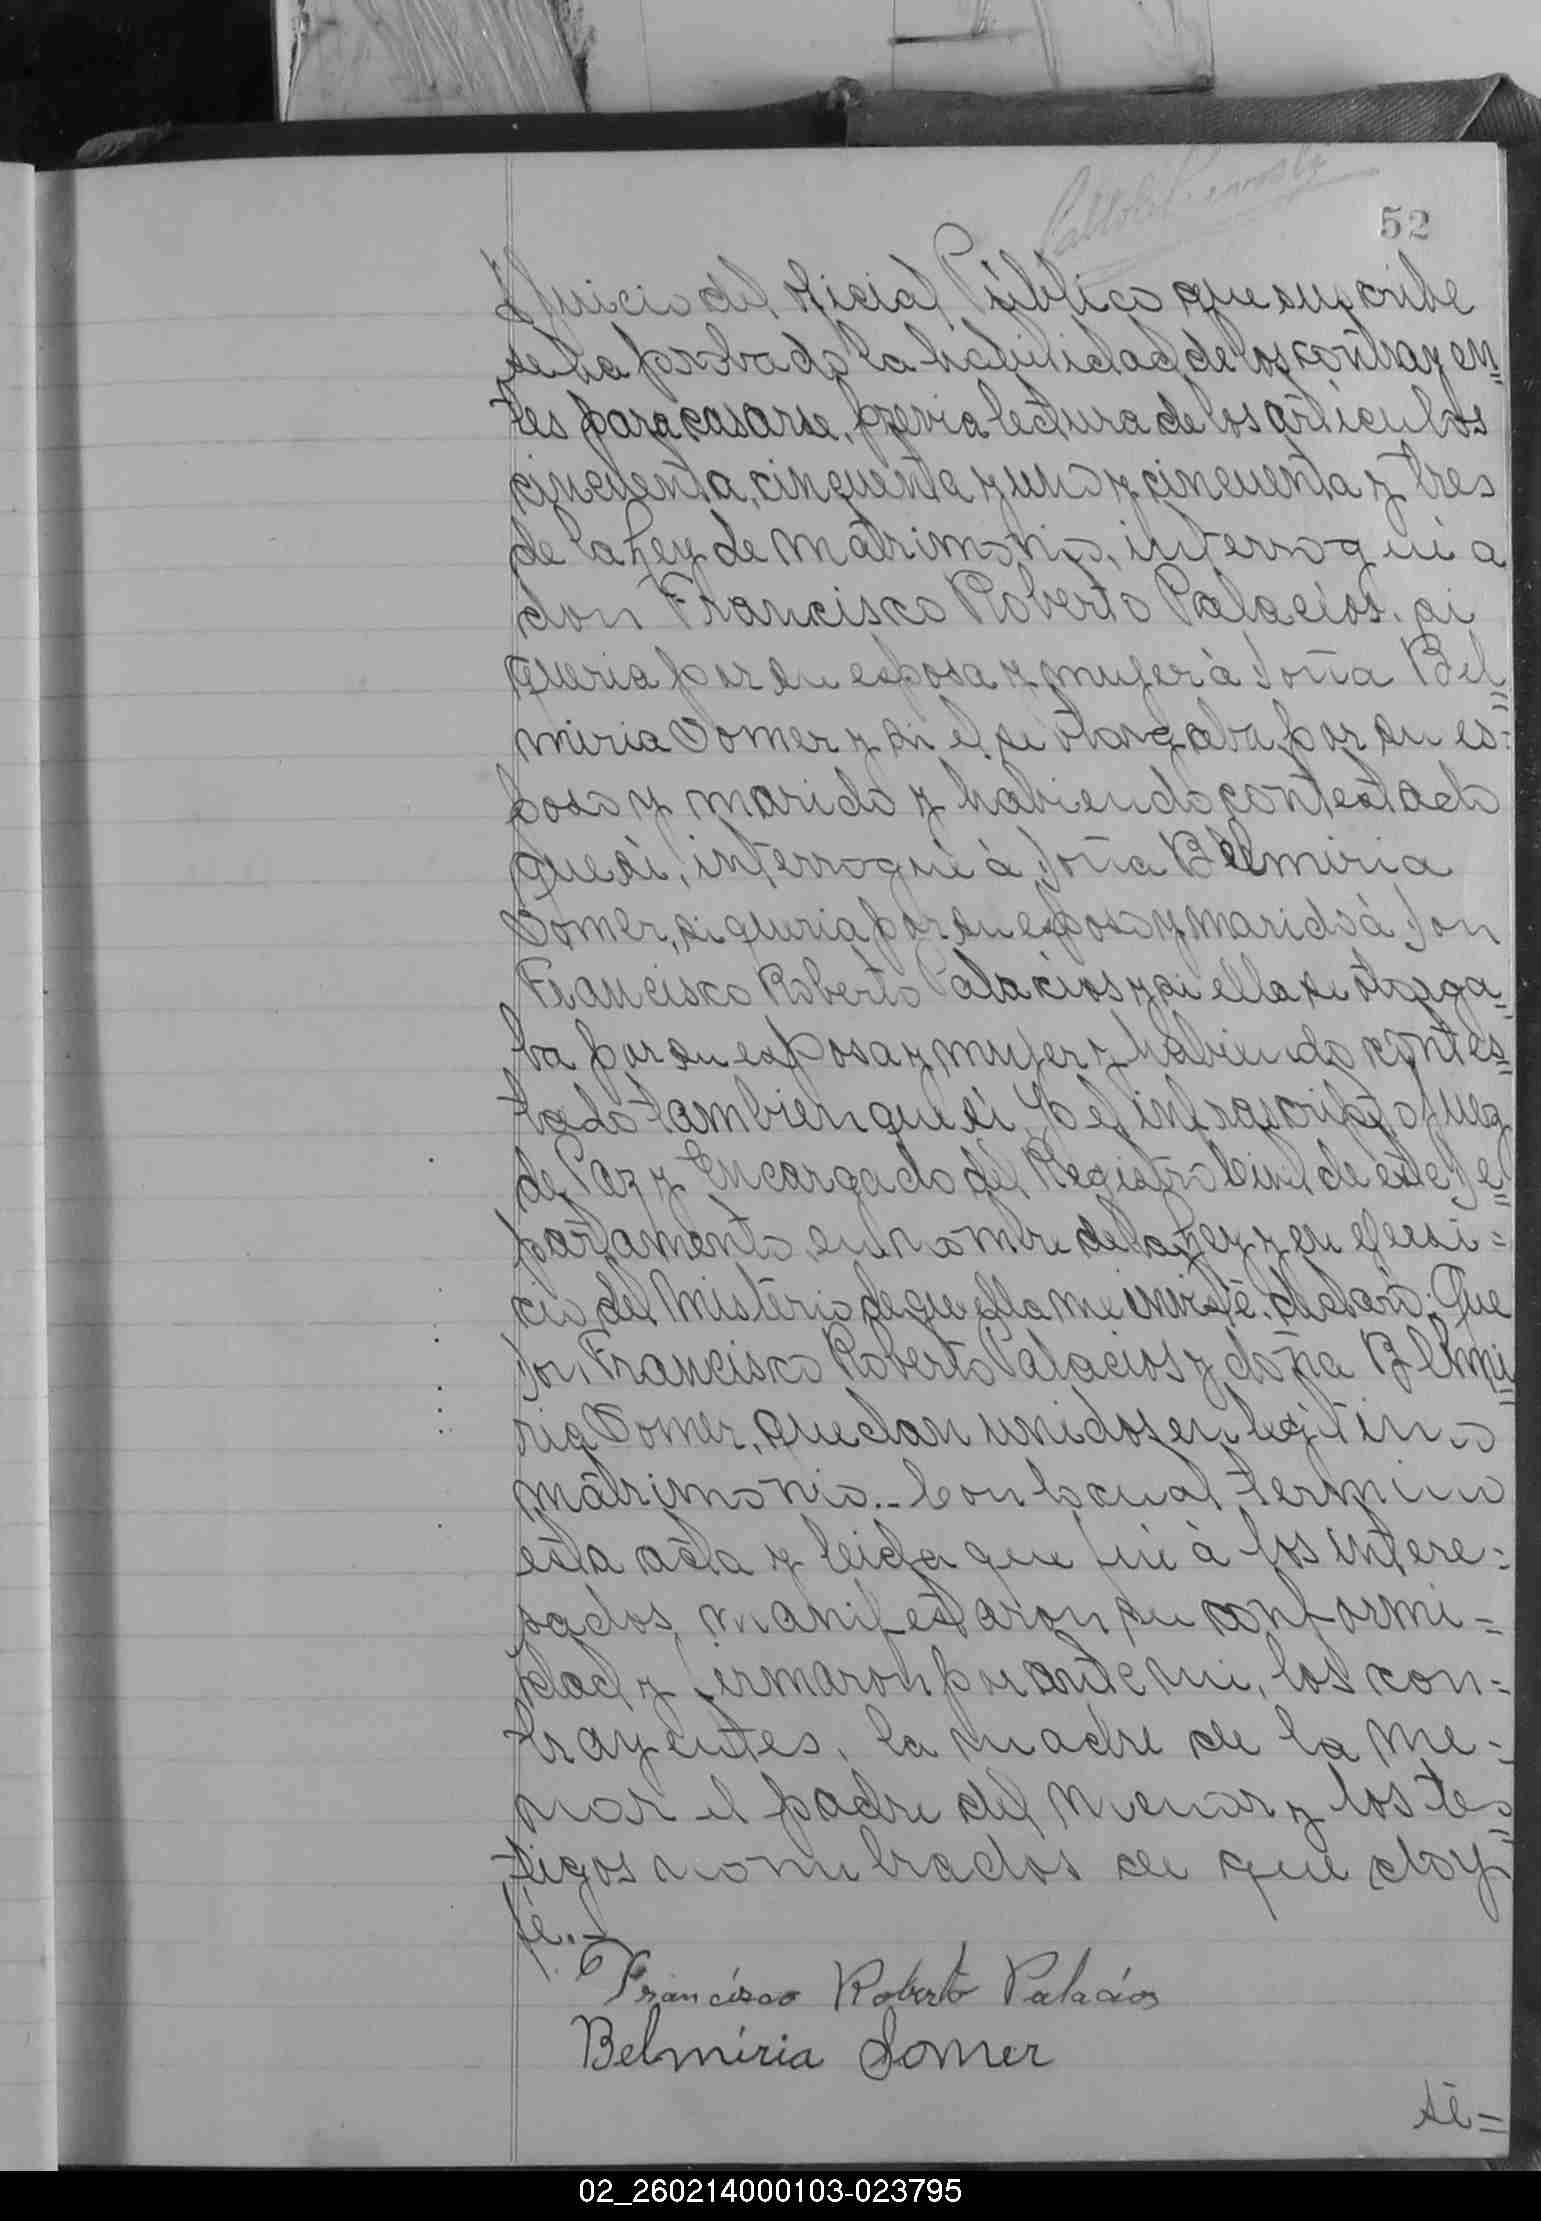 52
á juicio del oficial Público que suscribe
se ha probado la habilidad de los contrayen=
tes para casarse, previa lectura de los articulos
cincuenta, cinquenta y uno y cincuenta y tres
de la Ley de matrimonio, interroqué a
don Francisco Roberto Palacios, si
queria por su esposa y mujer à Doña Bel=
miria Somer y si el se otorgaba por su es=
poso y marido y habiendo contestado
que sí, interrogué à Doña Belmiria
Somer, si queria por su esposo y marido à Don
Francisco Roberto Palacios y si ella se otorga=
ba por su esposa y mujer y habiendo contes=
tado tambien que sí, Yo el infrascripto Juez
de Paz y Encargado del Registro Civil de este De=
partamento, en nombre de la Ley y en ejersi=
cio del Misterio de que ella me inviste, declaro: Que
Don Francisco Roberto Palacios y doña Belmi=
ria Somer, quedan unidos en legitimo
matrimonio.- Con lo cual termino
esta acta y leida que fué à los intere=
sados, manifestaron su conformi=
dad y firmaron por ante mi, los con=
trayentes, la madre de la me=
nor el padre del menor y los tes=
tigos nombrados de que doy
fé.-
Francisco Roberto Palacios
Belmíria Somer
sé=
02_260214000103-023795